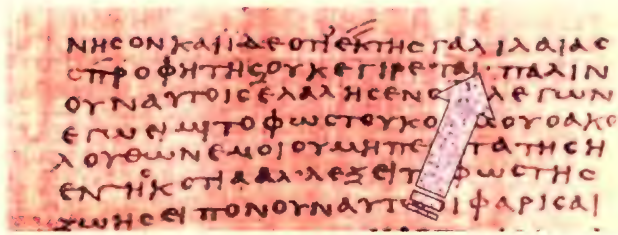 ΝΗϹΟΝΚΑΙΙΔΕΟΤΙΕΚΤΗϹΓΑΛΙΛΑΙΑϹ
ϹΠΡΟΦΗΤΗϹΟΥΚΕΓΙΡΕΤΑΙ·ΠΑΛΙΝ
ΟΥΝΑΥΤΟΙϹΕΛΑΛΗϹΕΝΟ ΛΕΓΩΝ
ΕΓΩΕΙΜΙΤΟΦΩϹΤΟΥΚΟ ΟΥΟΑΚΟ
ΛΟΥΘΩΝΕΜΟΙΟΥΜΗΠΕ ΤΑΤΗϹΗ
 ΑΛΛ ΦΩϹΤΗϹ
ΖΩΗϹΕΙΠΟΝΟΥΝΑΥΤ ΙΦΑΡΙϹΑΙ